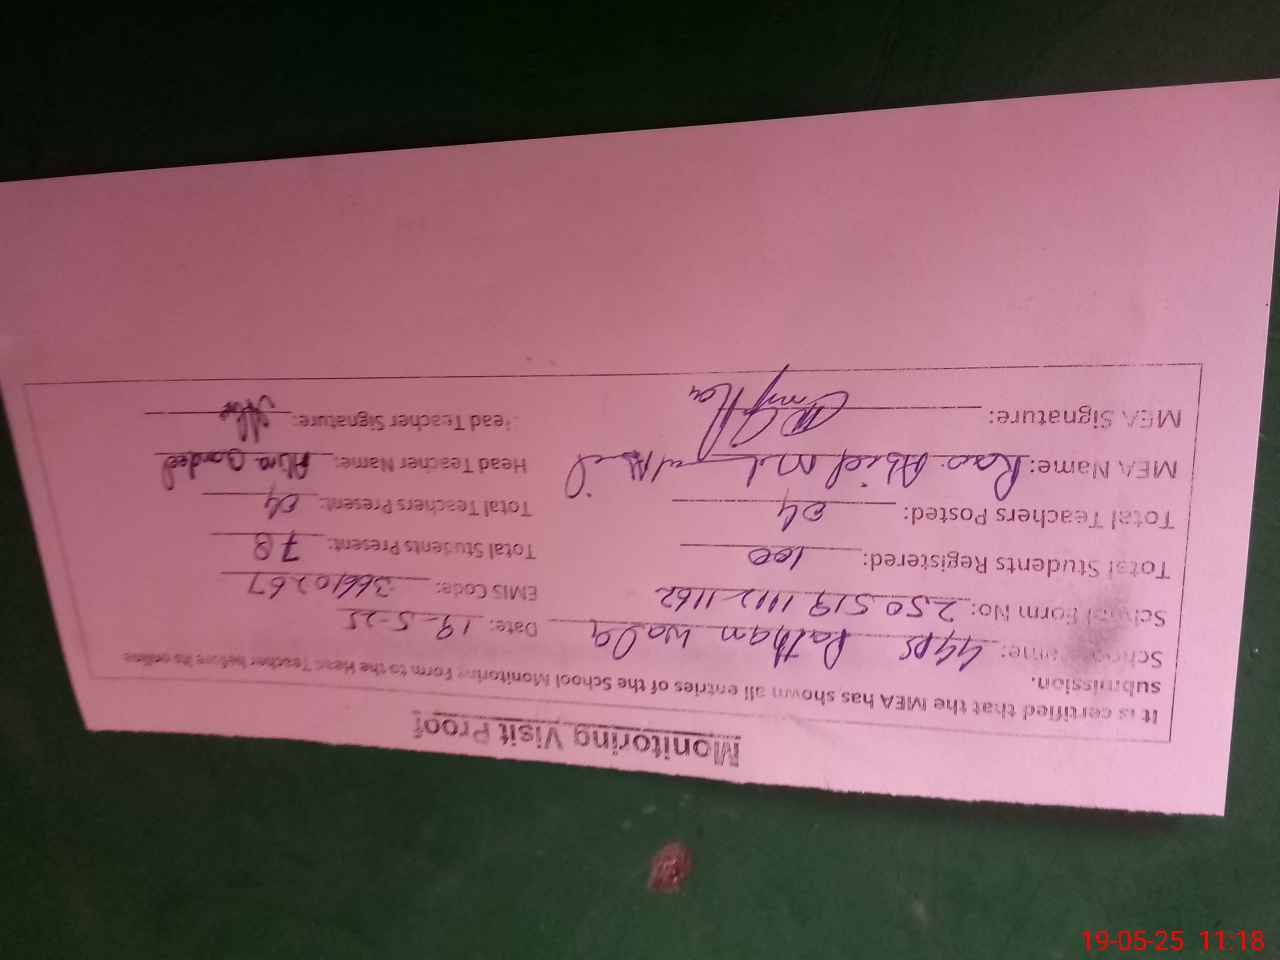 Monitoring Visit Proof
It is certified that the MEA has shown all entries of the School Monitoring Form to the Head Teacher before its online
submission.
School Name: GGPS Pathan wala Date: 19-5-25
School Form No: 250519111221162 EMIS Code: 36610267
Total Students Registered: 100 Total Students Present: 78
Total Teachers Posted: 04 Total Teachers Present: 04
MEA Name: Rao Abid Head Teacher Name:
MEA Signature: Head Teacher Signature:
19-05-25 11:18